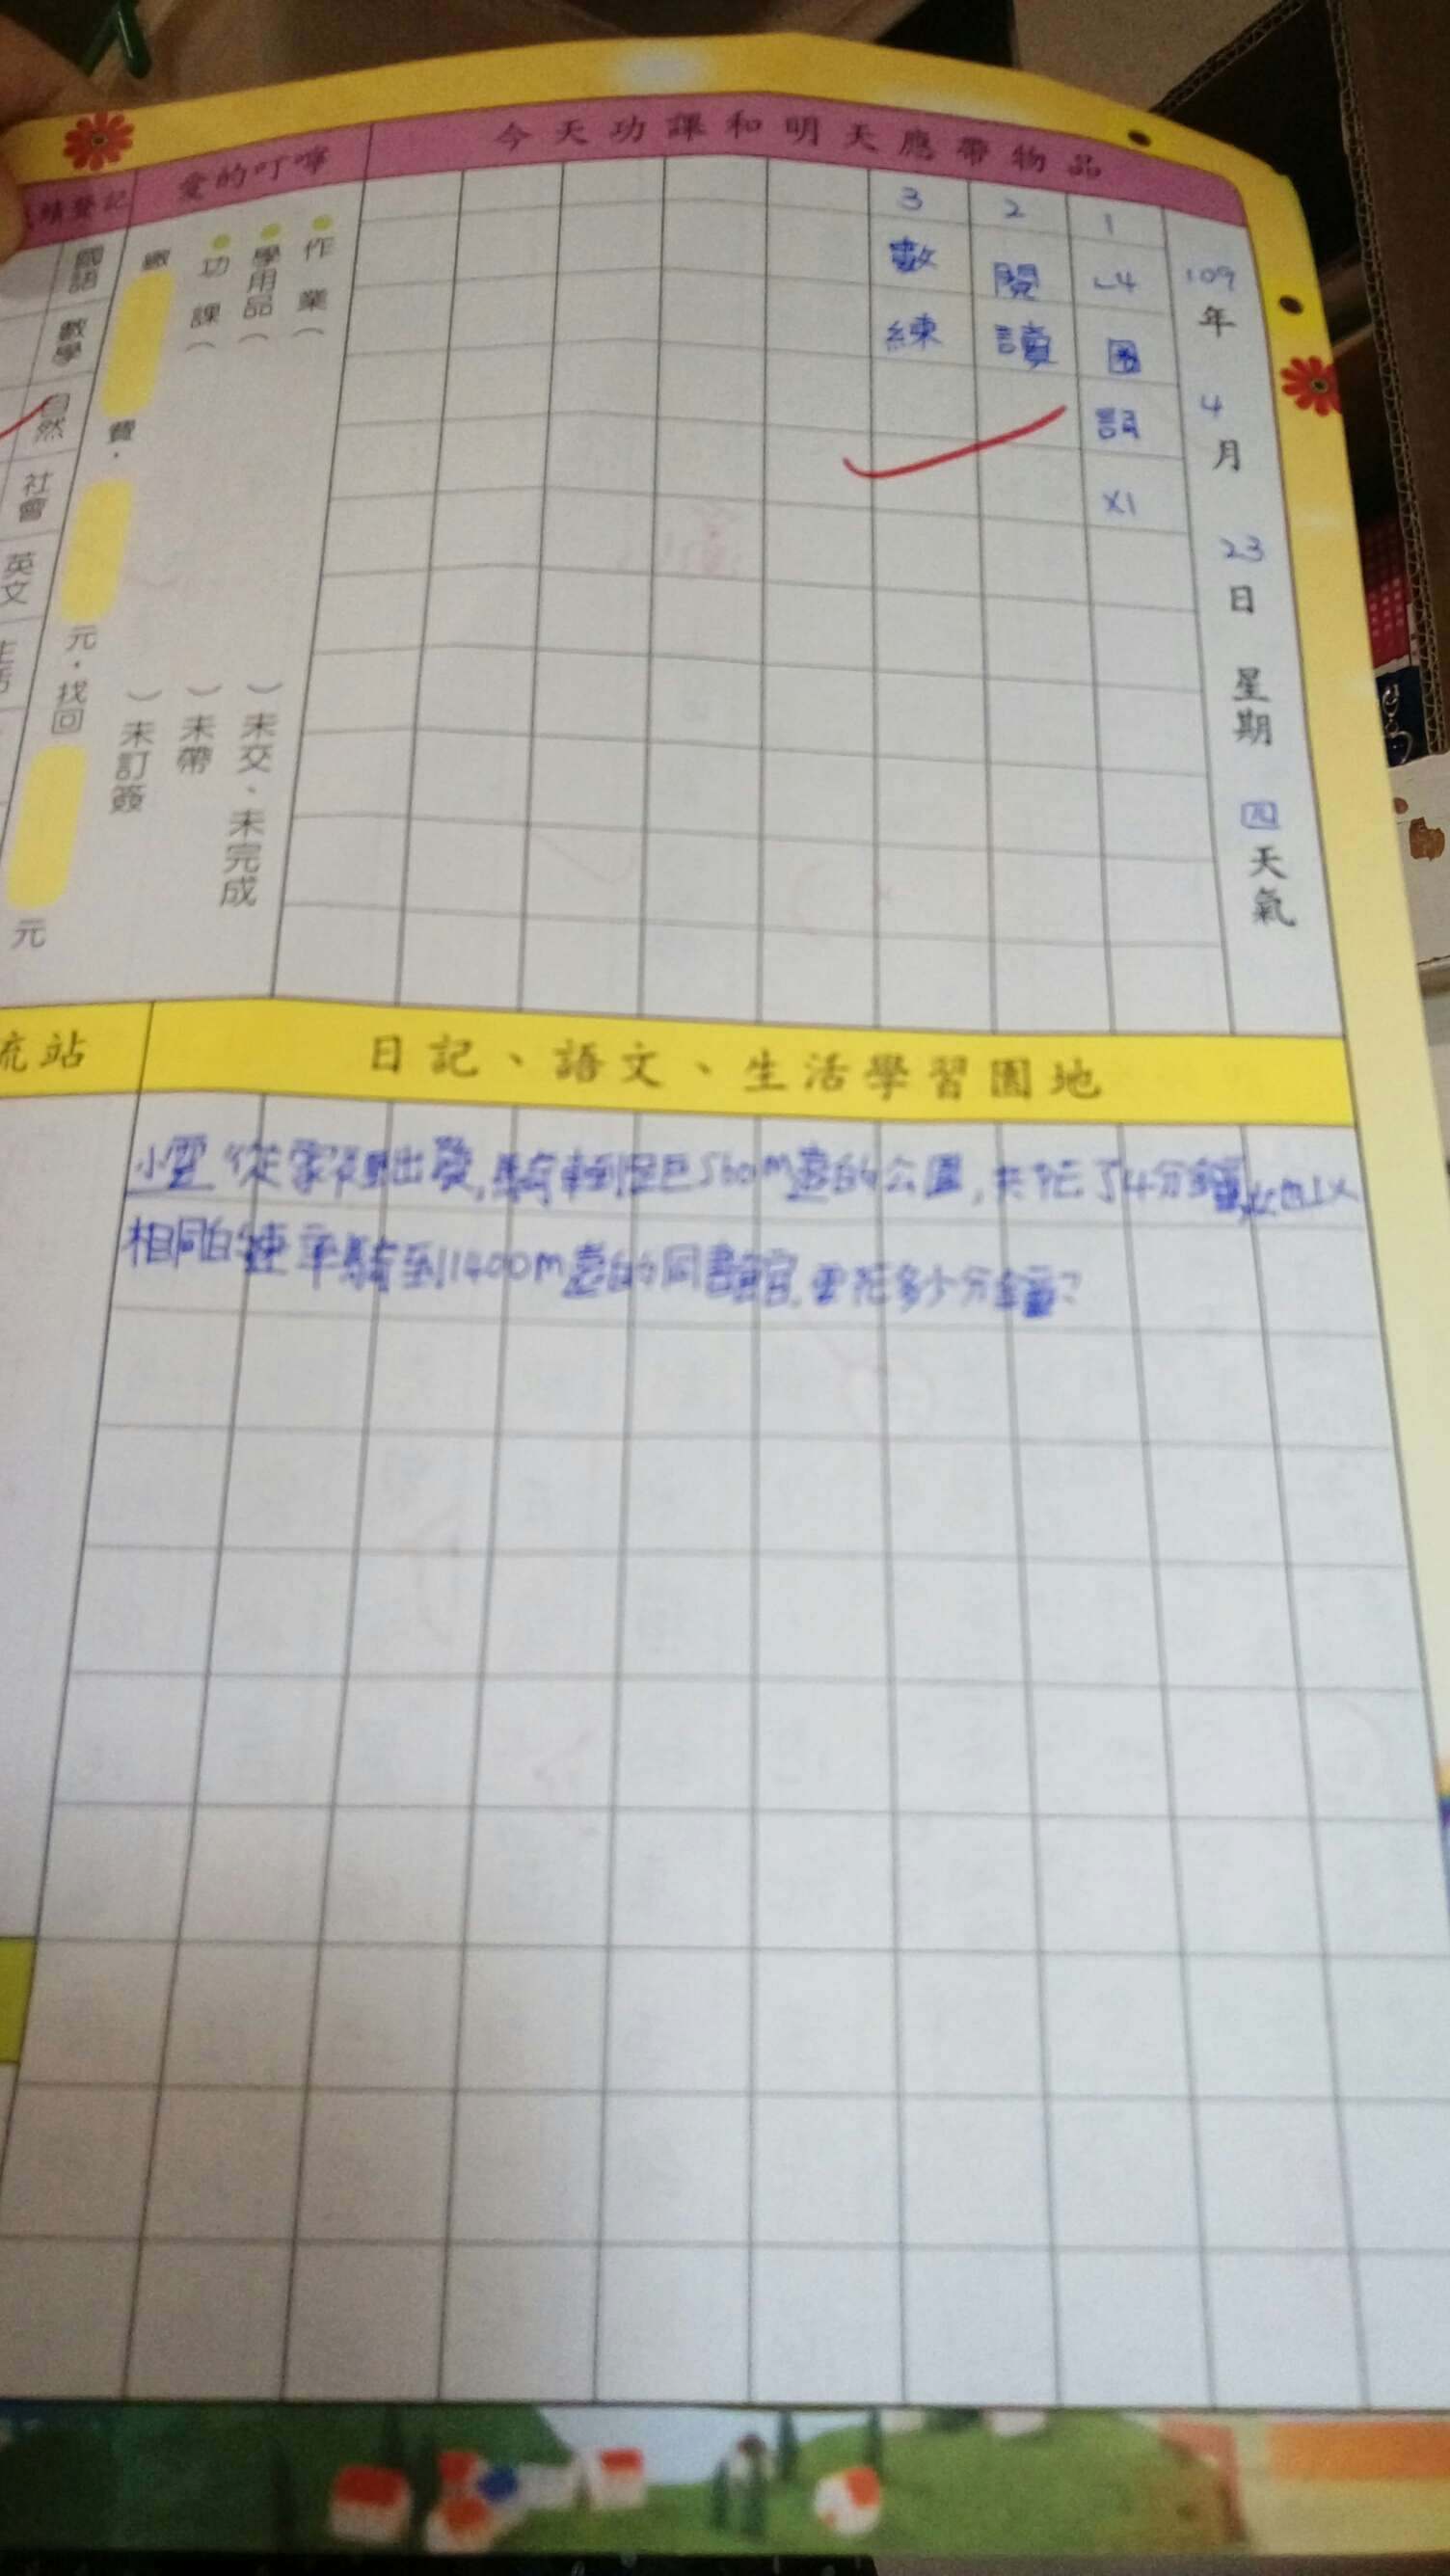 今天功課和明天應帶物品
109年4月23日 星期四 天氣
1 ㄥ4國詞x1
2 閱讀
3 數練
愛的叮嚀
作業( )未交、未完成
學用品( )未帶
功課( )未訂簽
繳 費, 元,找回 元
績登記
國語 數學 自然 社會 英文 生活
日記、語文、生活學習園地
小雲從家裡出發,騎車到距560m遠的公園,共花了4分鐘,她也以
相同的速率騎到1400m遠的同書館,要花多少分鐘?
流站